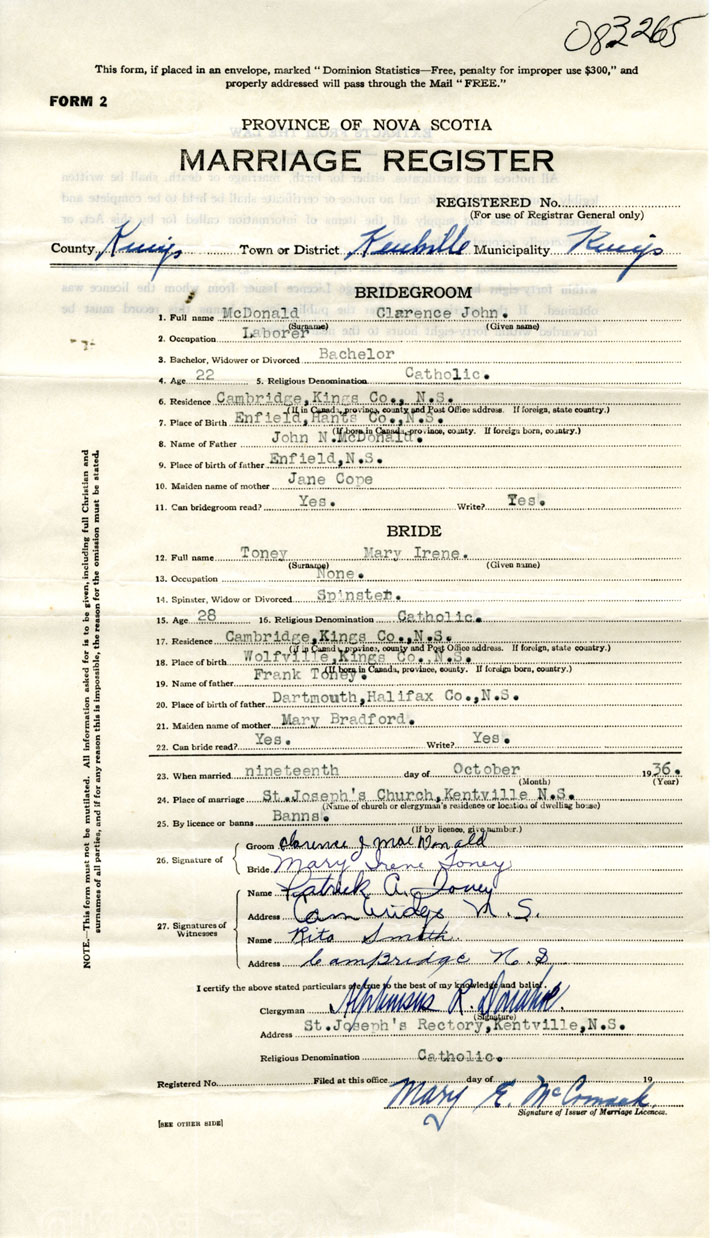 083265
This form, if placed in an envelope, marked "Dominion Statistics—Free, penalty for improper use $300," and
properly addressed will pass through the Mail "FREE."
FORM 2
PROVINCE OF NOVA SCOTIA
MARRIAGE REGISTER
REGISTERED No.
(For use of Registrar General only)
County Kings Town or District Kentville Municipality Kings
BRIDEGROOM
1. Full name McDonald Clarence John.
(Surname) (Given name)
2. Occupation Laborer
3. Bachelor, Widower or Divorced Bachelor
4. Age 22 5. Religious Denomination Catholic.
6. Residence Cambridge,Kings Co., N.S.
(If in Canada, province, county and Post Office address. If foreign, state country.)
7. Place of Birth Enfield,Hants Co.,N.S.
(If born in Canada, province, county. If foreign born, country.)
8. Name of Father John N.McDonald.
9. Place of birth of father Enfield,N.S.
10. Maiden name of mother Jane Cope
11. Can bridegroom read? Yes. Write? Yes.
BRIDE
12. Full name Toney Mary Irene.
(Surname) (Given name)
13. Occupation None.
14. Spinster, Widow or Divorced Spinster.
15. Age 28 16. Religious Denomination Catholic.
17. Residence Cambridge,Kings Co.,N.S.
(If in Canada, province, county and Post Office address. If foreign, state country.)
18. Place of birth Wolfville,Kings Co.,N.S.
(If born in Canada, province, county. If foreign born, country.)
19. Name of father Frank Toney.
20. Place of birth of father Dartmouth,Halifax Co.,N.S.
21. Maiden name of mother Mary Bradford.
22. Can bride read? Yes. Write? Yes.
23. When married nineteenth day of October 1936.
(Month) (Year)
24. Place of marriage St.Joseph's Church,Kentville N.S.
(Name of church or clergyman's residence or location of dwelling house)
25. By licence or banns Banns.
(If by licence, give number.)
26. Signature of
Groom Clarence J MacDonald
Bride Mary Irene Toney
27. Signatures of
Witnesses
Name Patrick A. Toney
Address Cambridge N.S.
Name Rita Smith
Address Cambridge N.S.
I certify the above stated particulars are true to the best of my knowledge and belief.
Clergyman Alphonsus R. Donahoe
(Signature)
Address St.Joseph's Rectory,Kentville,N.S.
Religious Denomination Catholic.
Registered No. Filed at this office day of 19
Mary E. McCormack
Signature of Issuer of Marriage Licences.
[SEE OTHER SIDE]
NOTE.—This form must not be mutilated. All information asked for is to be given, including full Christian and
surnames of all parties, and if for any reason this is impossible, the reason for the omission must be stated.